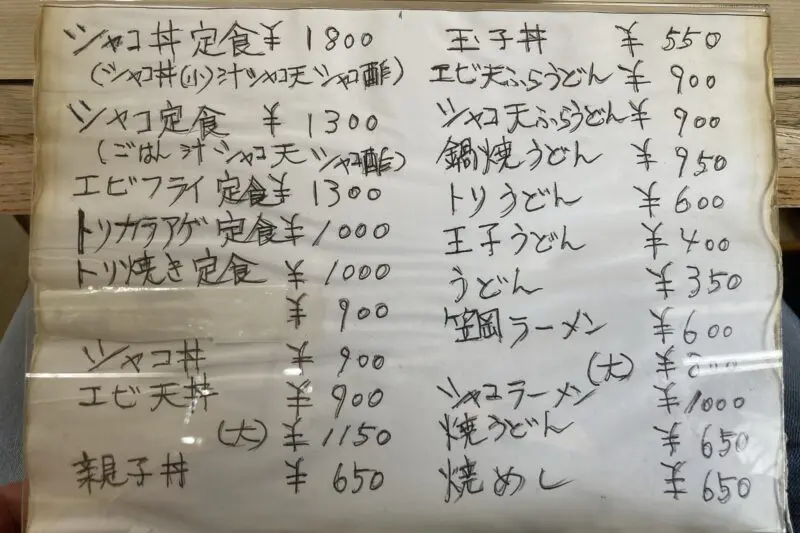 シャコ丼定食 ¥1800
(シャコ丼(小)汁シャコ天シャコ酢)
シャコ定食 ¥1300
(ごはん汁シャコ天シャコ酢)
エビフライ定食 ¥1300
トリカラアゲ定食 ¥1000
トリ焼き定食 ¥1000
¥900
シャコ丼 ¥900
エビ天丼 ¥900
(大) ¥1150
親子丼 ¥650
玉子丼 ¥550
エビ天ぷらうどん ¥900
シャコ天ぷらうどん ¥900
鍋焼うどん ¥950
トリうどん ¥600
玉子うどん ¥400
うどん ¥350
笠岡ラーメン ¥600
(大) ¥
シャコラーメン ¥1000
焼うどん ¥650
焼めし ¥650